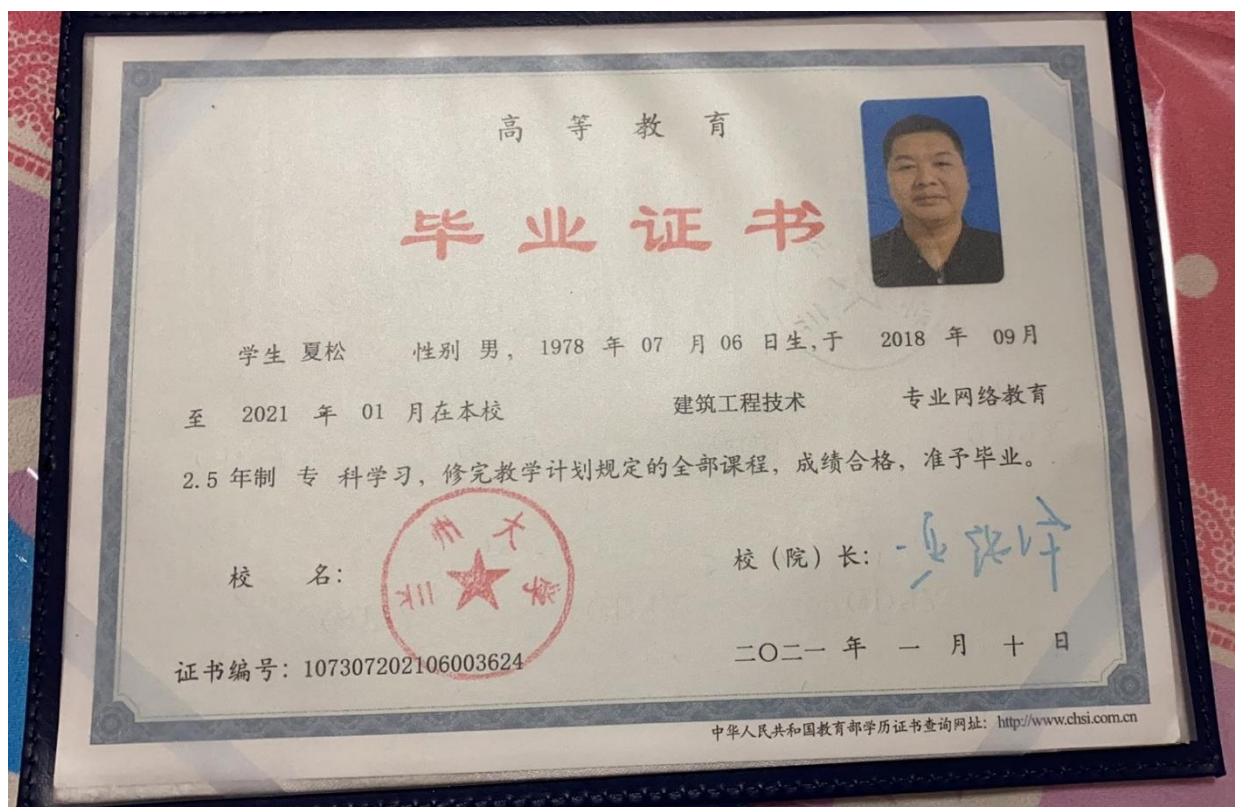 高等教育
毕业证书
学生 夏松 性别 男, 1978 年 07 月 06 日生,于 2018 年 09月
至 2021 年 01 月在本校 建筑工程技术 专业网络教育
2.5 年制 专 科学习,修完教学计划规定的全部课程,成绩合格,准予毕业。
校 名:
校(院)长:
证书编号:107307202106003624
二〇二一 年 一 月 十 日
中华人民共和国教育部学历证书查询网址:http://www.chsi.com.cn